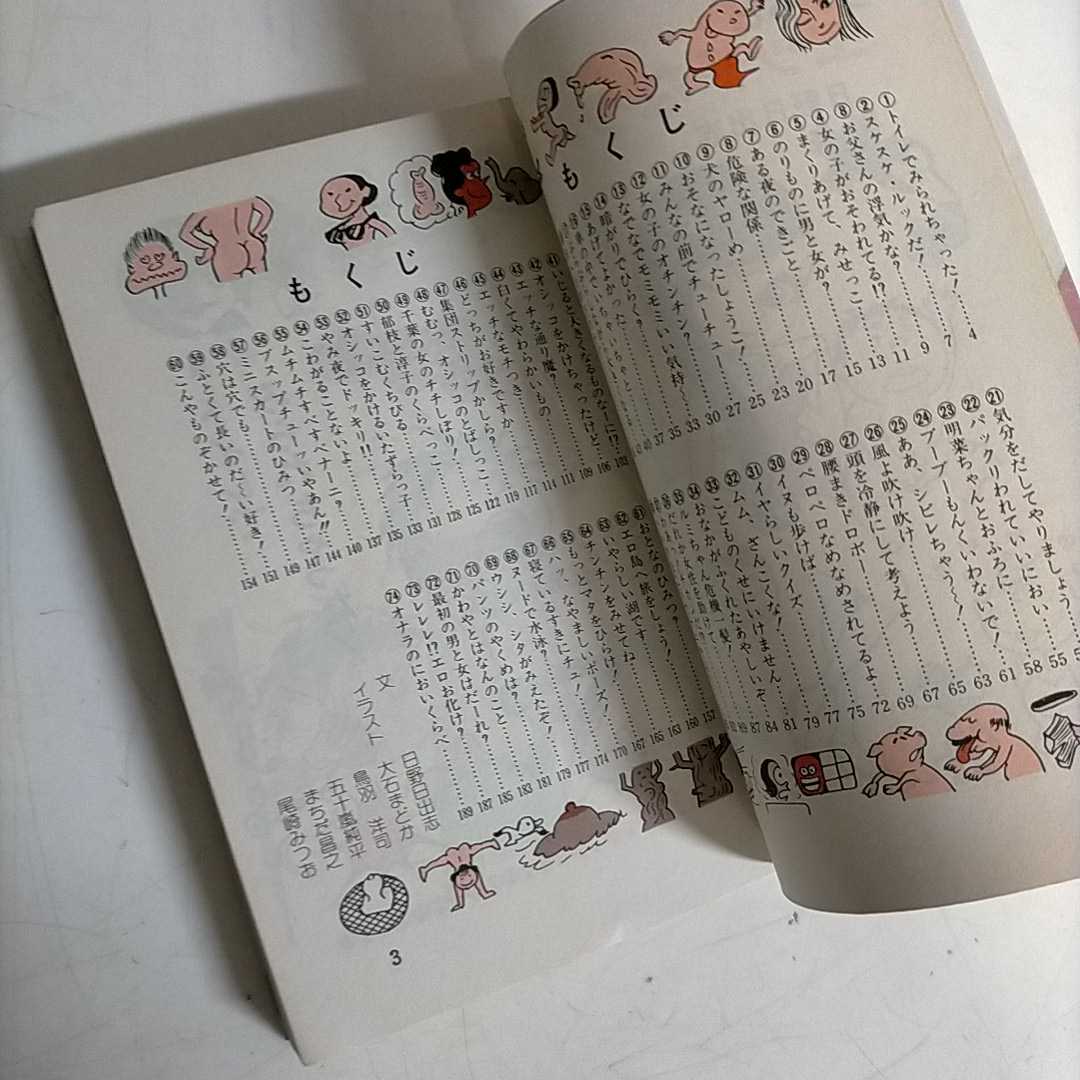 もくじ
①トイレでみられちゃった!……4
②スケスケ・ルックだ!……7
⑧お父さんの浮気かな?……9
④女の子がおそわれてる!?……11
⑤まくりあげて、みせっこ……13
⑥のりものに男と女が?……15
⑦ある夜のできごと……17
⑧危険な関係……20
⑨犬のヤローめ……23
⑩おそなになったしょうこ!……25
⑪みんなの前でチューチュー……27
⑫女の子のオチンチン?……30
⑬なでなでモミモミいい気持~……33
⑭暗がりでひらく……35
⑮あげてよかった!……37
㉑気分をだしてやりましょう
㉒パックリわれていいにおい……55
㉓明菜ちゃんとおふろに……58
㉔ブーブーもんくいわないで!……61
㉕ああ、シビレちゃう~!……63
㉖風よ吹け吹け……65
㉗頭を冷静にして考えよう……67
㉘腰まきドロボー……69
㉙ペロペロなめなめされてるよ……72
㉚イヌも歩けば……75
㉛イヤらしいクイズ……77
㉜ムム、さんこくな!……79
㉝こどものくせにいけません……81
㉞おなかがふくれたあやしいぞ……84
㉟ルミちゃん危機一髪!……87
もくじ
㊶いじると大きくなるものなーに!?……103
㊷オシッコをかけちゃったけど……106
㊸エッチな通り魔?……109
㊹白くてやわらかいもの……111
㊺エッチなモチつき……114
㊻どっちがお好きですか……117
㊼集団ストリップかしら?……119
㊽むむっ、オシッコのとばしっこ……122
㊾千葉の女のチチしぼり!……125
㊿郁枝と淳子のくらべっこ……128
51 すいこむくちびる……131
52 オシッコをかけるいたずらっ子……133
53 やみ夜でドッキリ!!……135
54 こわがることないよ……137
55 ムチムチすべすべナーニ?……140
56 ブスップチューッいやあん!!……144
57 ミニスカートのひみつ……147
58 穴は穴でも……149
59 ふとくて長いのだ~い好き!……151
60 こんやものぞかせて!……154
61 おとなのひみつ?……157
62 エロ島へ旅をしよう……160
63 いやらしい湖です……163
64 チンチンをみせてね……165
65 もっとマタをひらけ!……167
66 ハッ、なやましいポーズ!……170
67 寝ているすきにチュ!……174
68 ヌードで水泳?……177
69 ウシシ、シタがみえたぞ!……179
70 パンツのやくめは?……181
71 かわやとはなんのこと……183
72 最初の男と女はだーれ?……185
73 レレレ!?エロお化け?……187
74 オナラのにおいくらべ……189
文 日野日出志
大石まどか
イラスト 鳥羽 洋司
五十嵐範平
まちだ昌之
尾崎みつお
3